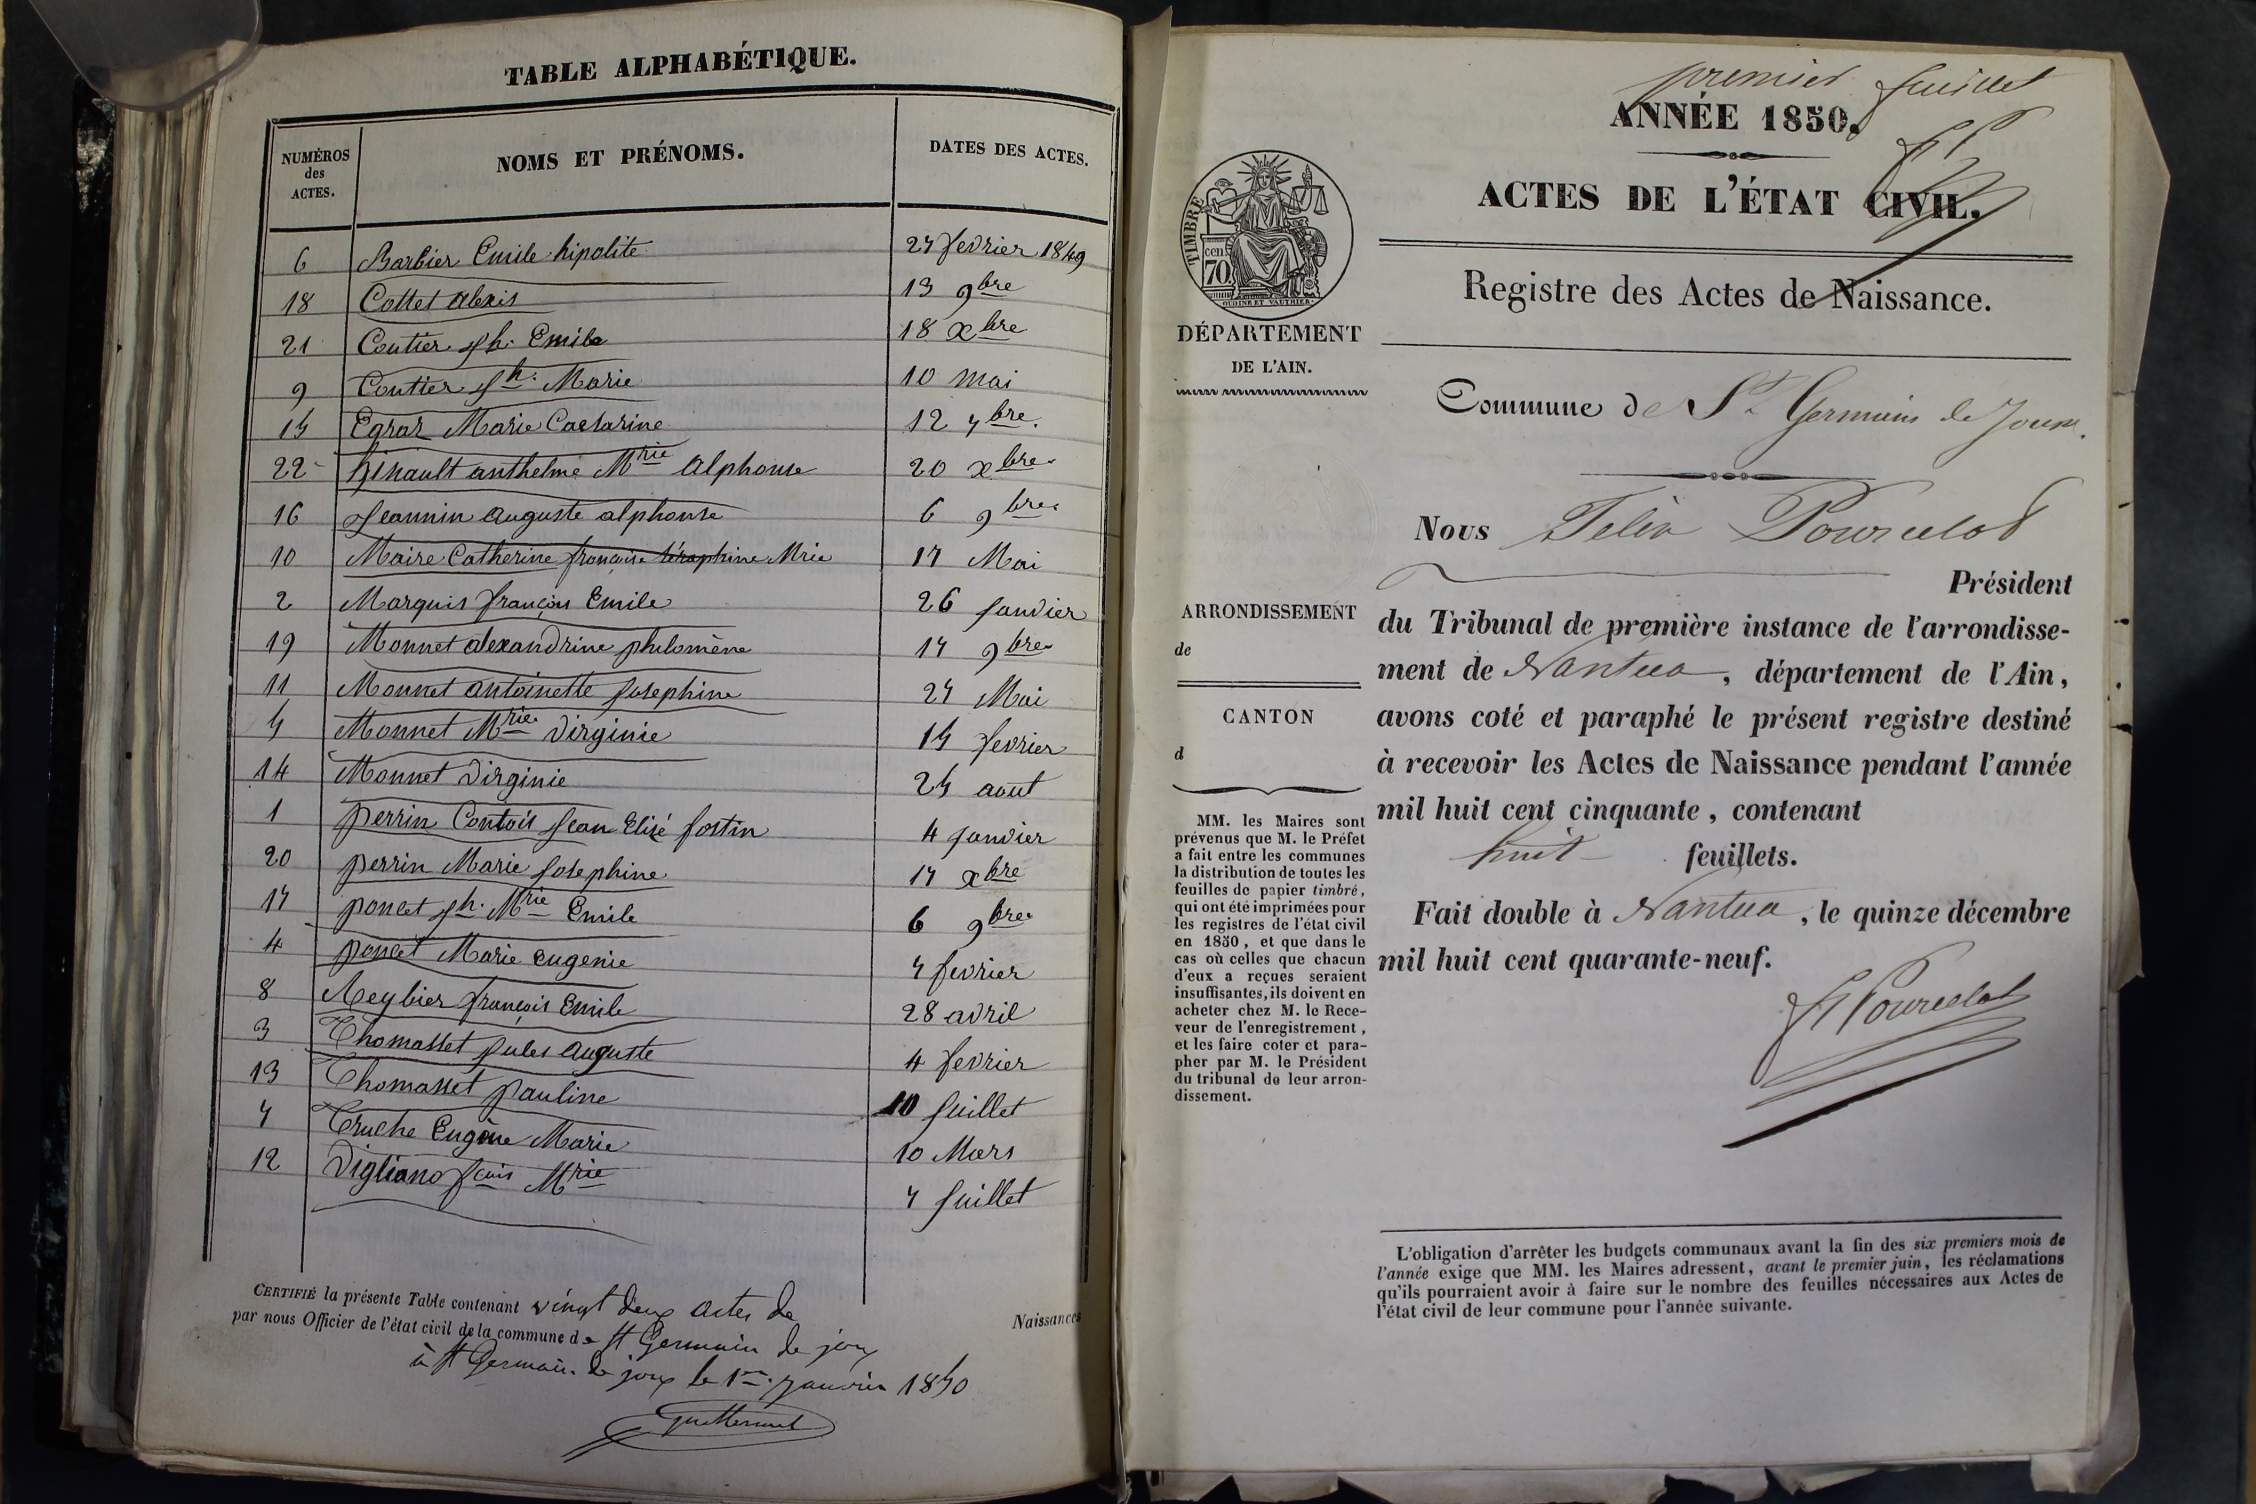 TABLE ALPHABÉTIQUE.
NUMÉROS des ACTES. NOMS ET PRÉNOMS. DATES DES ACTES.
6 Barbier Emile hipolite 27 fevrier 1849
18 Cottet alexis 13 9bre
21 Coutier jh. Emile 18 xbre
9 Coutier jh. Marie 10 mai
15 Egraz Marie Caesarine 12 7bre.
22 hinault anthelme Mrie alphonse 20 xbre
16 Jeannin auguste alphonse 6 9bre
10 Maire Catherine françoise séraphine Mrie 17 Mai
2 Marquis françois Emile 26 janvier
19 Monnet alexandrine philomène 17 9bre
11 Monnet antoinette Josephine 27 Mai
5 Monnet Mrie Virginie 15 fevrier
14 Monnet Virginie 25 aout
1 perrin Contois Jean Elisé fostin 4 janvier
20 perrin Marie Josephine 17 xbre
17 poncet jh. Mrie Emile 6 9bre
4 poncet Marie eugenie 7 fevrier
8 Reybier françois Emile 28 avril
3 Thomasset Jules auguste 4 fevrier
13 Thomasset pauline 10 Juillet
7 Truche Eugène Marie 10 Mars
12 Vigliano fcois Mrie 7 Juillet
CERTIFIÉ la présente Table contenant vingt deux actes de Naissances
par nous Officier de l'état civil de la commune de St Germain de joux
à St Germain de joux le 1er janvier 1850
premier feuillet
ANNÉE 1850.
ACTES DE L'ÉTAT CIVIL.
Registre des Actes de Naissance.
TIMBRE
cen.
70.
OUDINE ET VAUTHIER
DÉPARTEMENT
DE L'AIN.
Commune de St Germain de Joux.
Nous Félix Pourcelot
Président
du Tribunal de première instance de l'arrondisse-
ment de Nantua, département de l'Ain,
avons coté et paraphé le présent registre destiné
à recevoir les Actes de Naissance pendant l'année
mil huit cent cinquante, contenant
huit feuillets.
Fait double à Nantua, le quinze décembre
mil huit cent quarante-neuf.
F Pourcelot
ARRONDISSEMENT
de
CANTON
d
MM. les Maires sont
prévenus que M. le Préfet
a fait entre les communes
la distribution de toutes les
feuilles de papier timbré,
qui ont été imprimées pour
les registres de l'état civil
en 1850, et que dans le
cas où celles que chacun
d'eux a reçues seraient
insuffisantes, ils doivent en
acheter chez M. le Rece-
veur de l'enregistrement,
et les faire coter et para-
pher par M. le Président
du tribunal de leur arron-
dissement.
L'obligation d'arrêter les budgets communaux avant la fin des six premiers mois de
l'année exige que MM. les Maires adressent, avant le premier juin, les réclamations
qu'ils pourraient avoir à faire sur le nombre des feuilles nécessaires aux Actes de
l'état civil de leur commune pour l'année suivante.